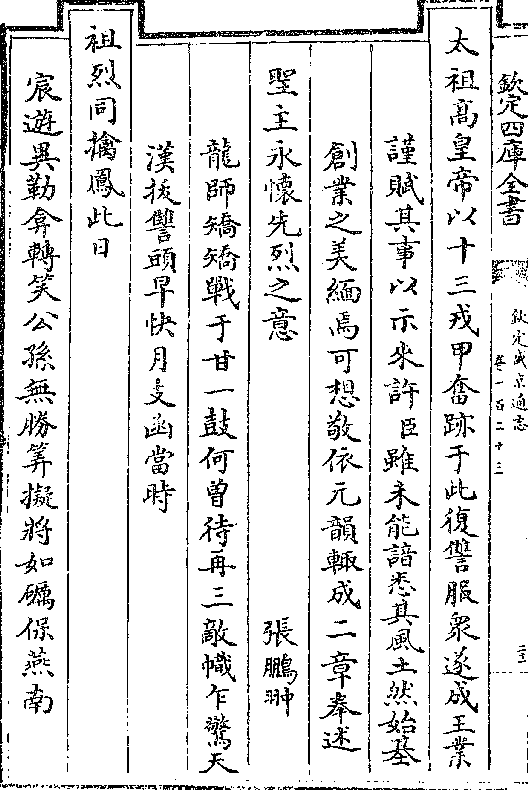 欽定四庫全書
欽定盛京通志
卷一百二十三
太祖高皇帝以十三戎甲奮跡于此復讐服衆遂成王業
謹賦其事以示來許臣雖未能諳悉其風土然始基
創業之美緬焉可想敬依元韻輒成二章奉述
聖主永懷先烈之意
張鵬翀
龍師矯矯戰于甘一鼓何曽待再三敵幟乍驚天
漢抜讐頭早快月支函當時
祖烈同擒鳳此日
宸遊異勒弇轉笑公孫無勝筭擬將如礪保燕南